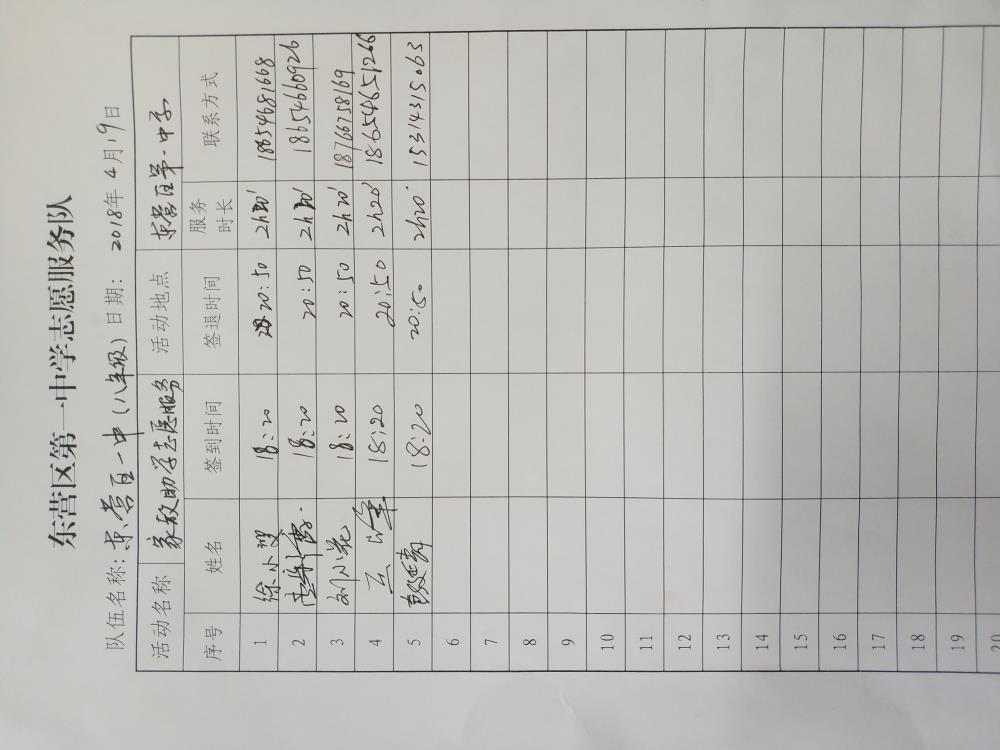 东营区第一中学志愿服务队
队伍名称: 东营区一中(八年级) 日期: 2018年4月19日
活动名称 家教助学志愿服务 活动地点 东营区第一中学
序号 姓名 签到时间 签退时间 服务时长 联系方式
1 徐小 18:20 20:50 2h20' 18654681668
2 18:20 20:50 2h20' 18654660926
3 刘小花 18:20 20:50 2h20' 18766758169
4 18:20 20:50 2h20' 18654651266
5 18:20 20:50 2h20' 15314315063
6
7
8
9
10
11
12
13
14
15
16
17
18
19
20